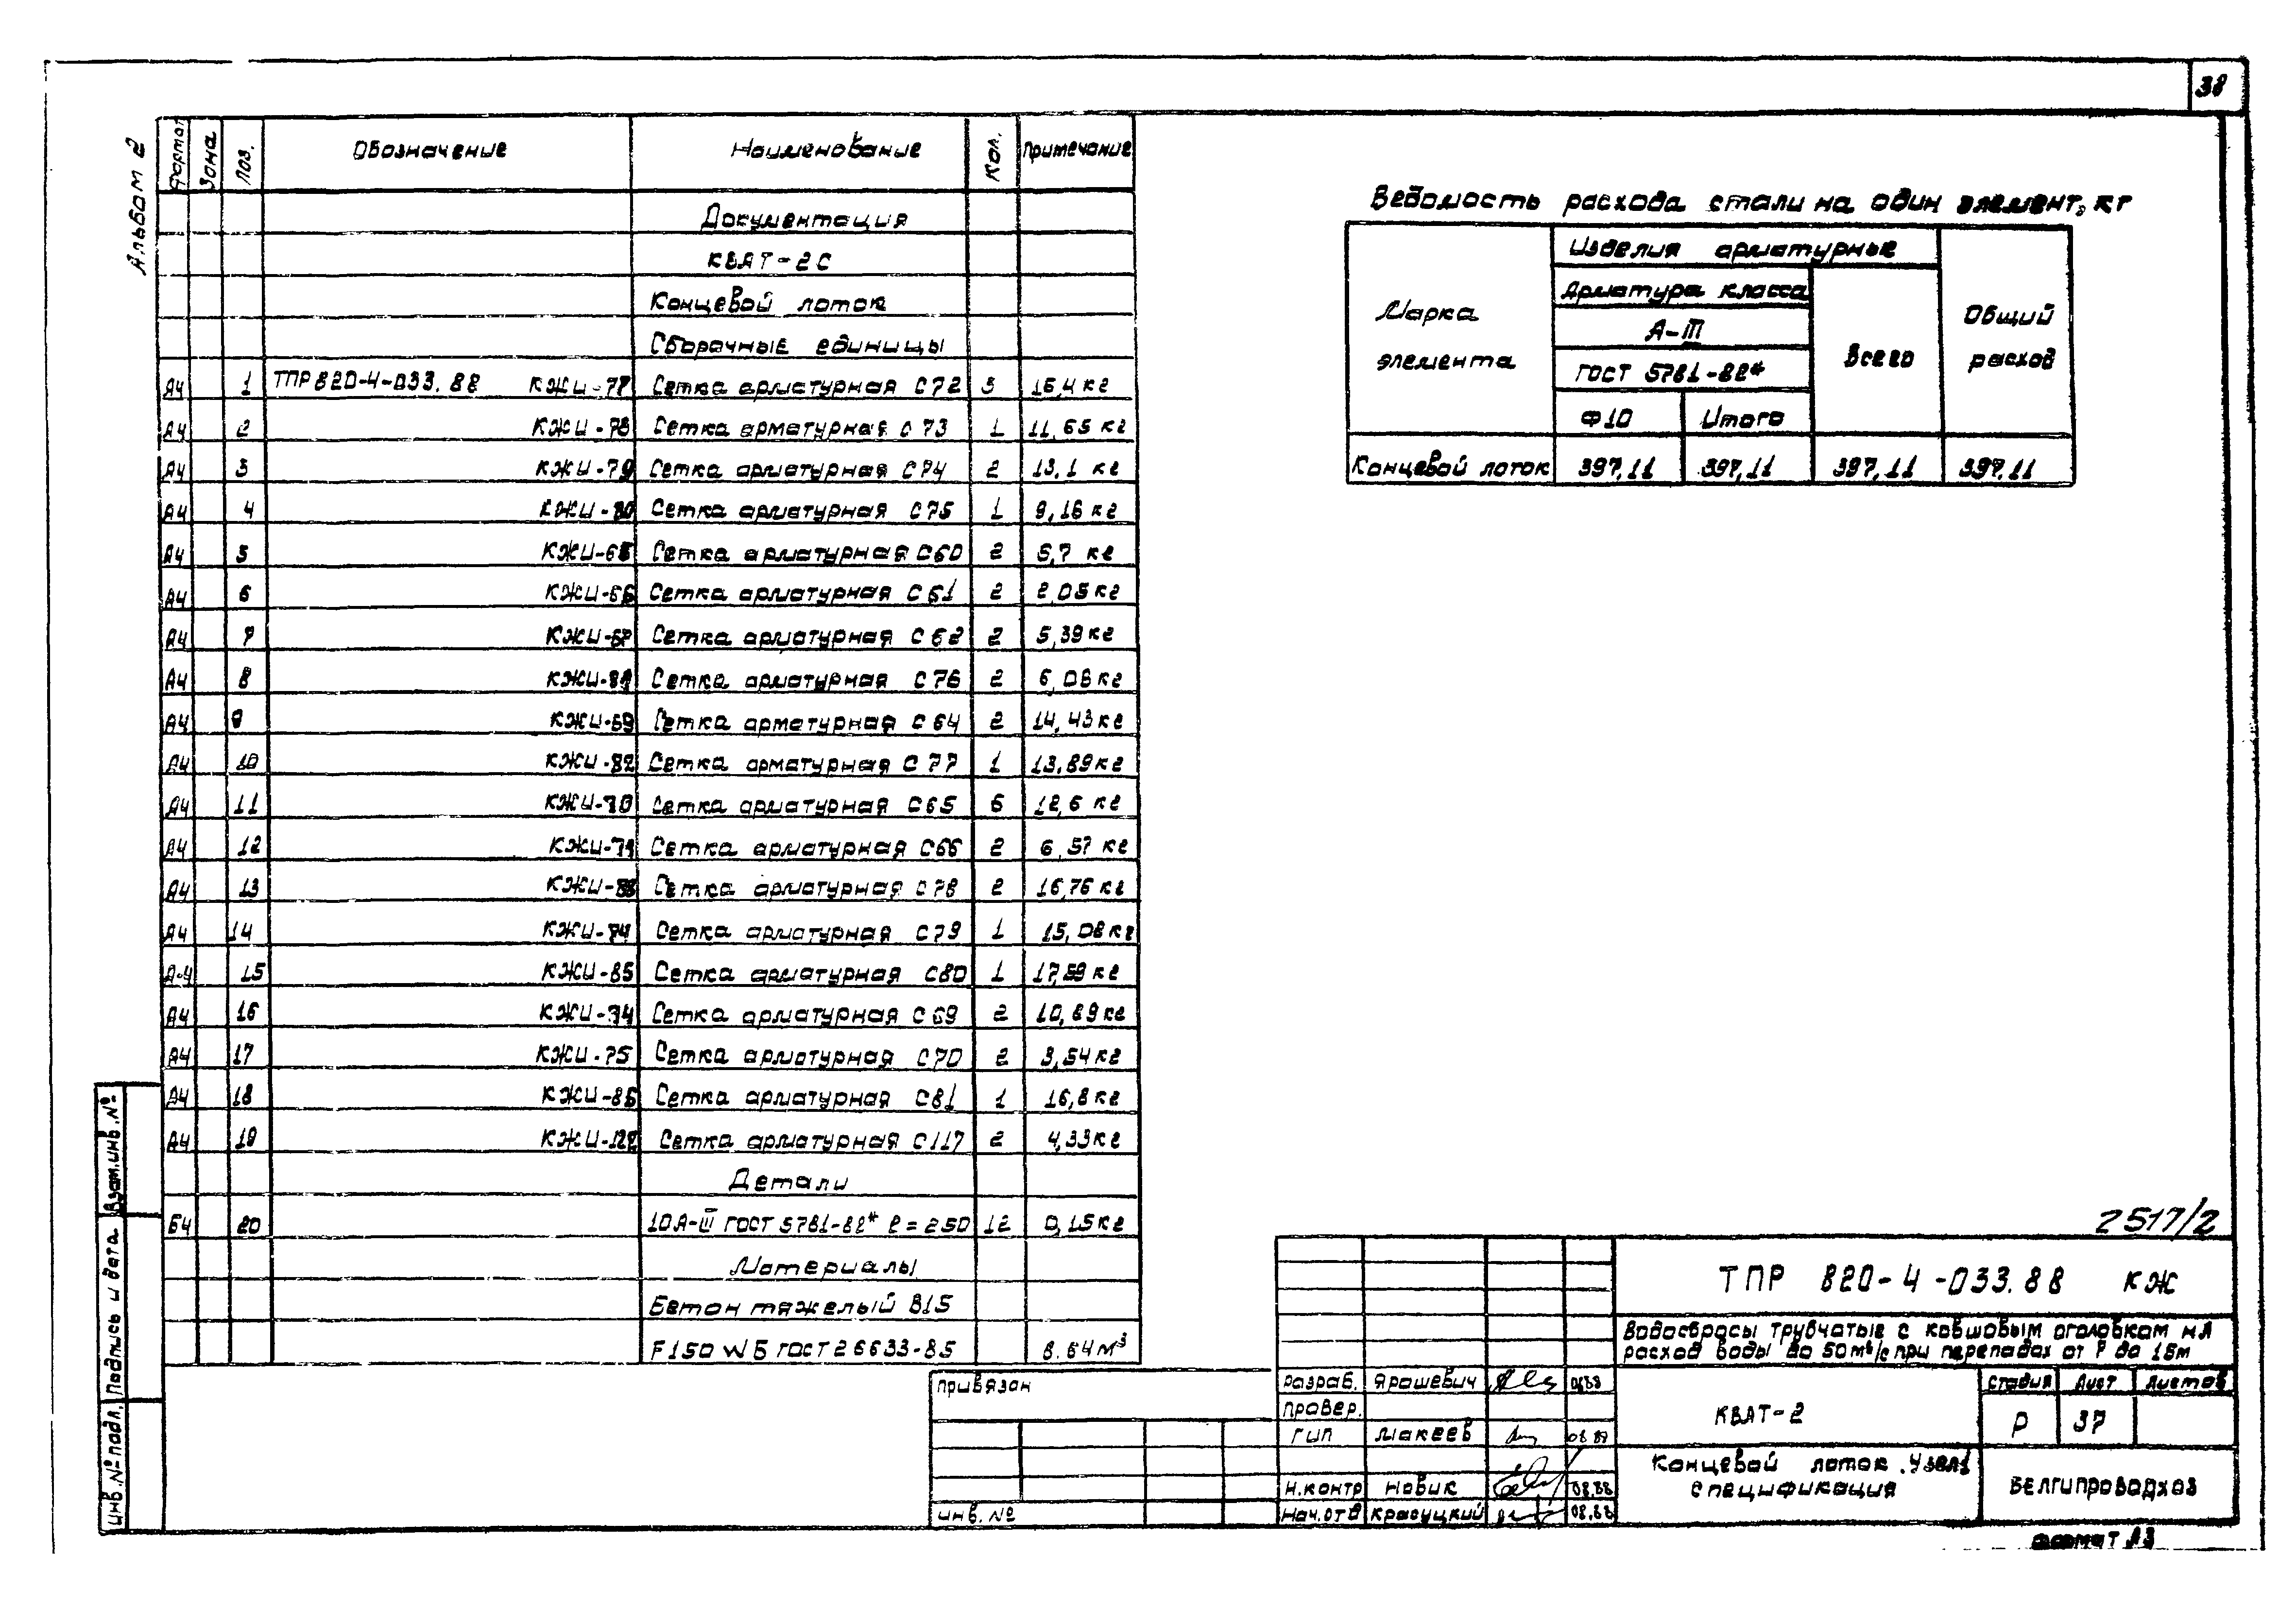 38
Альбом 2
Формат Зона Поз. Обозначение Наименование Кол. Примечание
Документация
КВАТ-2С
Концевой лоток
Сборочные единицы
А4 1 ТПР 820-4-033.88 КЖИ-77 Сетка арматурная С72 3 16,4 кг
А4 2 КЖИ-78 Сетка арматурная С73 1 11,65 кг
А4 3 КЖИ-79 Сетка арматурная С74 2 13,1 кг
А4 4 КЖИ-80 Сетка арматурная С75 1 9,16 кг
А4 5 КЖИ-65 Сетка арматурная С60 2 5,7 кг
А4 6 КЖИ-66 Сетка арматурная С61 2 2,05 кг
А4 7 КЖИ-67 Сетка арматурная С62 2 5,39 кг
А4 8 КЖИ-81 Сетка арматурная С76 2 6,08 кг
А4 9 КЖИ-69 Сетка арматурная С64 2 14,43 кг
А4 10 КЖИ-82 Сетка арматурная С77 1 13,89 кг
А4 11 КЖИ-70 Сетка арматурная С65 6 12,6 кг
А4 12 КЖИ-71 Сетка арматурная С66 2 6,57 кг
А4 13 Сетка арматурная С78 2 16,76 кг
А4 14 Сетка арматурная С79 1 15,08 кг
А4 15 КЖИ-85 Сетка арматурная С80 1 17,59 кг
А4 16 КЖИ-74 Сетка арматурная С69 2 10,89 кг
А4 17 КЖИ-75 Сетка арматурная С70 2 3,54 кг
А4 18 КЖИ-86 Сетка арматурная С81 1 16,8 кг
А4 19 КЖИ-122 Сетка арматурная С117 2 4,33 кг
Детали
БЧ 20 10А-III ГОСТ 5781-82* ℓ=250 12 0,15 кг
Материалы
Бетон тяжелый В15
F150 W6 ГОСТ 26633-85 8.64 м³
Ведомость расхода стали на один элемент, кг
Марка элемента
Изделия арматурные
Арматура класса
А-III
ГОСТ 5781-82*
Ф10 Итого
Всего
Общий расход
Концевой лоток 397,11 397,11 397,11 397,11
2517/2
ТПР 820-4-033.88 КЖ
Водосбросы трубчатые с ковшовым оголовком на
расход воды до 50 м³/с при перепадах от 7 до 15м
Разраб. Ярошевич
Провер.
ГИП Макеев 08.89
Н.контр Новик 08.88
Нач.отв Красуцкий 08.88
КВАТ-2
Стадия Лист Листов
Р 37
Концевой лоток. Узел 1
Спецификация
Белгипроводхоз
Привязан
Инв. №
Инв.№ подл. Подпись и дата Взам.инв.№
Формат А3